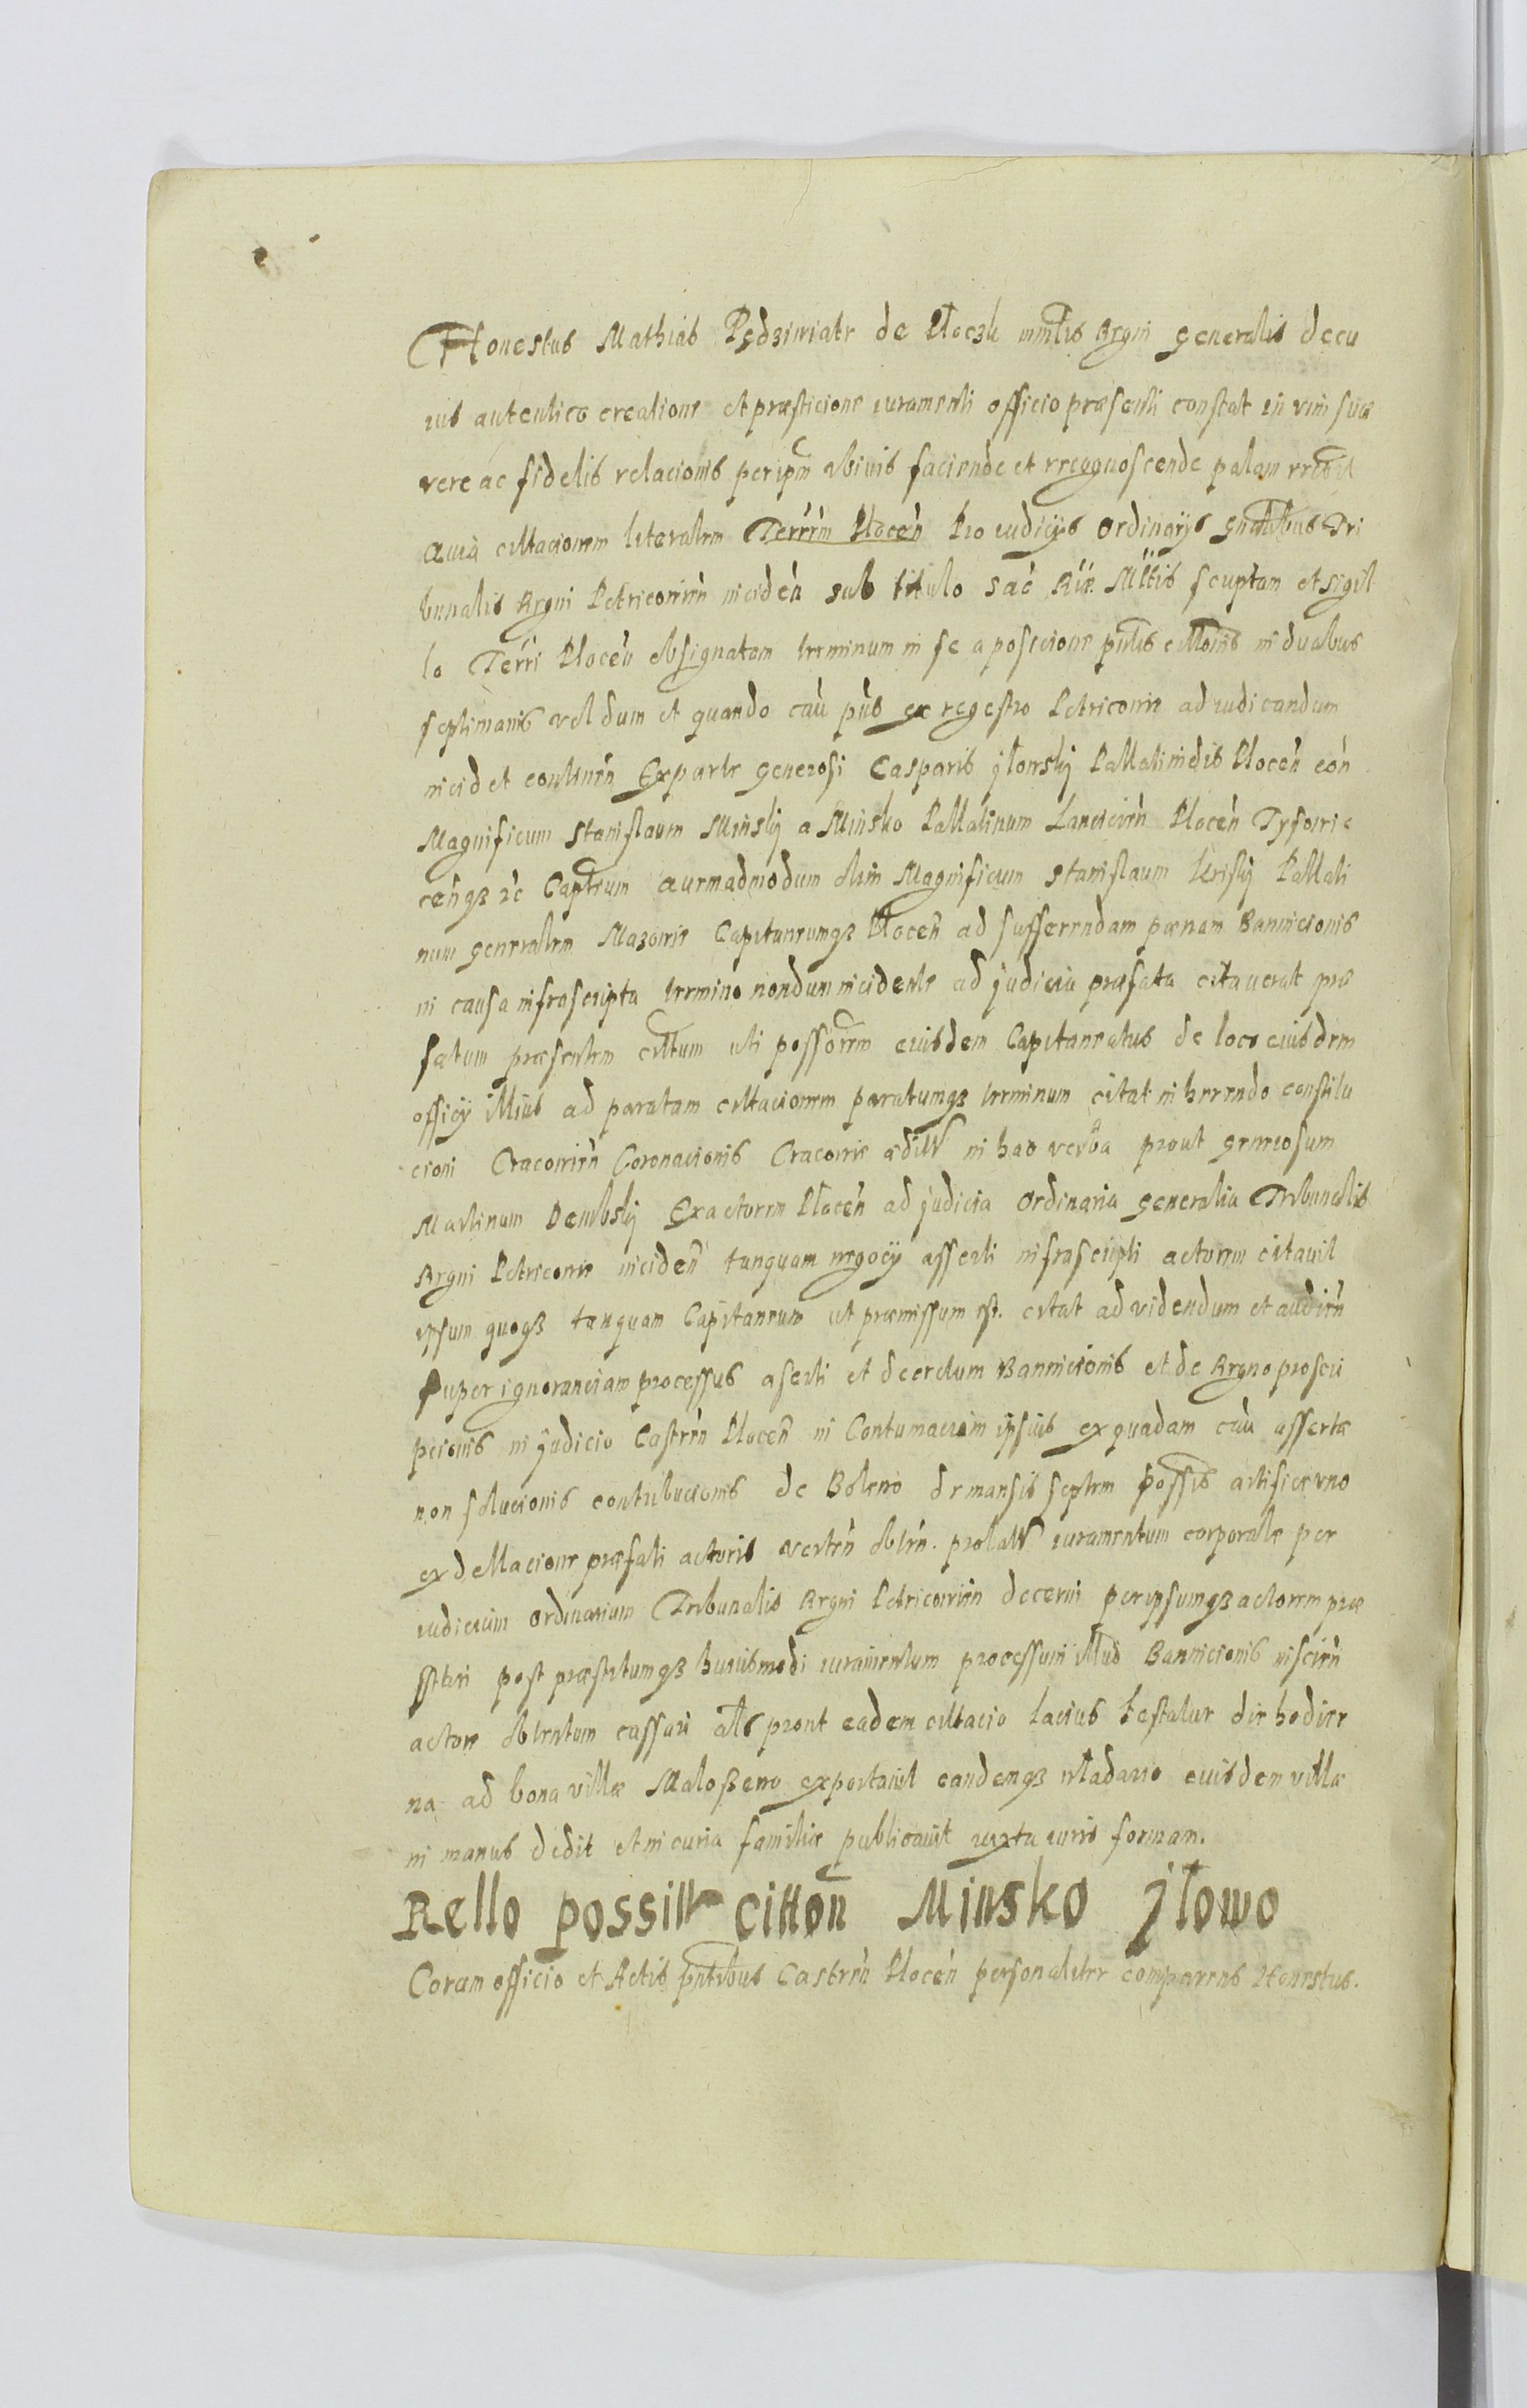 Honestus Mathias Pędziwiatr de Płoczk mintlis Regni generalis de cu
ius autentico creatione et præsticione iuramenti officio præsenti constat in vim suæ
vere ac fidelis relacionis per ipm abinis faciende et recognoscende palam
quia cittacionem literalem Terrem Plocen Pro iudicijs Ordinarijs gnalibus Tri
bunalis Regni Petricovien inciden sub titulo sac Rie Mttis scriptam et sigil
lo Terri Plocen obsignatam terminum in se a posicione pntis cittonis in duabus
septimanis vel dum et quando cau pns ex regestro Petricovie ad iudicandum
incidet continen Ex parte generosi Casparis jłowskj Pallatinidis Plocen con
Magnificum Stanislaum Minskj a Minsko Pallatinum Lancicien Plocen Tyfowie
cenqz zc Captneum quemadmodum olim Magnificum Stanislaum Kriskj Pallati
num generalem Mazovie Capitaneumqz Plocen ad sufferrendam pænam Bannicionis
in causa infrascripta termino nondum incidente ad judicia præfata citaverat præ
fatum præsentem cittum uti possorem eiusdem Capitaneatus de loco eiusdem
officij illius ad paratam cittacionem paratumqz terminum citat inherendo constitu
cioni Cracovien Coronacionis Cracovie æditæ in hæc verba prout generosum
Martinum Dembskj Exactorem Plocen ad judicia Ordinaria generalia Tribunalis
Regni Petricovie inciden tanquam negocij asserti infrascripti actorem citavit
ipsum quoqz tanquam Capitaneum ut præmissum est. citat ad videndum et audien
super ignoranciam processus aserti et decretum Bannicionis et de Regno proscri
pcionis in judicio Castren Plocen in Contumaciam ipsius ex quadam cau assertæ
non solucionis contribucionis de Boleno de mansis septem possis artifice uno
ex dellacione præfati actoris verten obten. prolatæ iuramentum corporale per
iudicium ordinarium Tribunalis Regni Petricovien decerni per ipsumqz actorem præ
stari post præstitumqz huiusmodi iuramentum processum illud Bannicionis inscien
actore obtentum cassari als prout eadem cittacio lacius testatur die hodier
na ad bona villæ Maloszeno exportavit eandemqz włodario eiusdem villæ
in manus dedit et in curia familiæ publicavit iuxta iuris formam.
Rello possitæ citton Minsko jłowo
Coram officio et Actis pntibus Castren Plocen personaliter comparens Honestus.